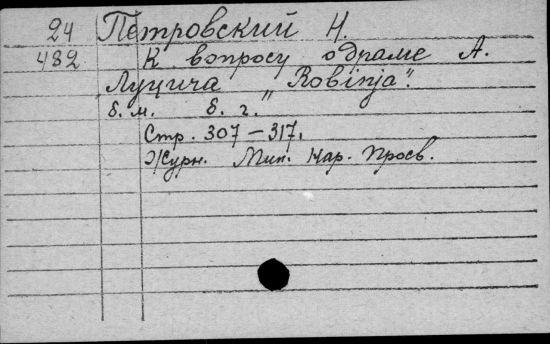 24 Петровский Н.
482 К вопросу о драме А.
Луцича „Robinja“.
б. м. б. г.
Стр. 307–317.
Журн. Мин. Нар. Просв.